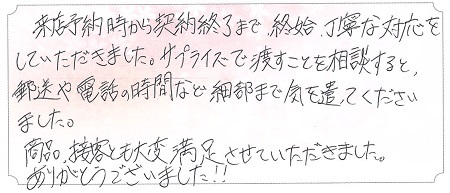 来店予約時から契約終了まで、終始、丁寧な対応を
していただきました。サプライズで渡すことを相談すると、
郵送や電話の時間など細部まで気を遣ってください
ました。
商品、接客とも大変満足させていただきました。
ありがとうございました!!